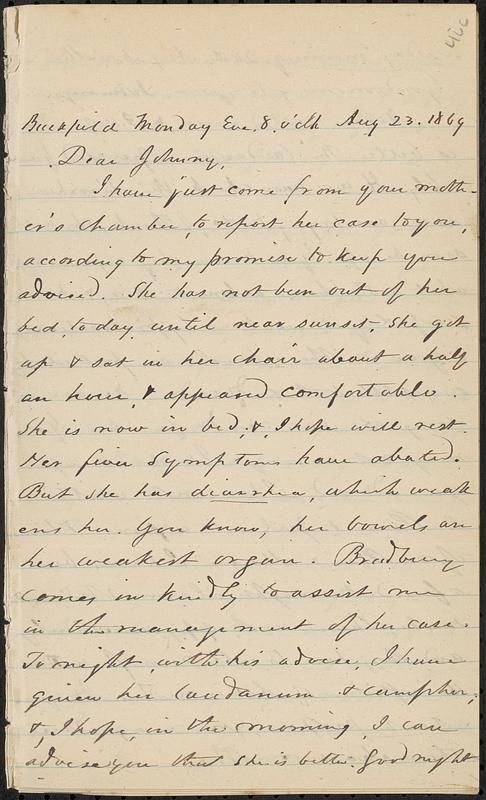 466
Buckfield Monday Eve, 8, o'clk Aug 23. 1869
Dear Johnny,
I have just come from your moth-
er's chamber, to report her case to you,
according to my promise to keep you
advised. She has not been out of her
bed, to day, until near sunset. She got
up & sat in her chair about a half
an hour, & appeared comfortable.
She is now in bed, &, I hope will rest.
Her fever symptoms have abated.
But she has diarrhea, which weak
ens her. You know, her bowels are
her weakest organ. Bradbury
comes in kindly to assist me
in the management of her case.
To night, with his advise, I have
given her laudanum & camphor;
&, I hope, in the morning, I can
advise you that she is better. Good night